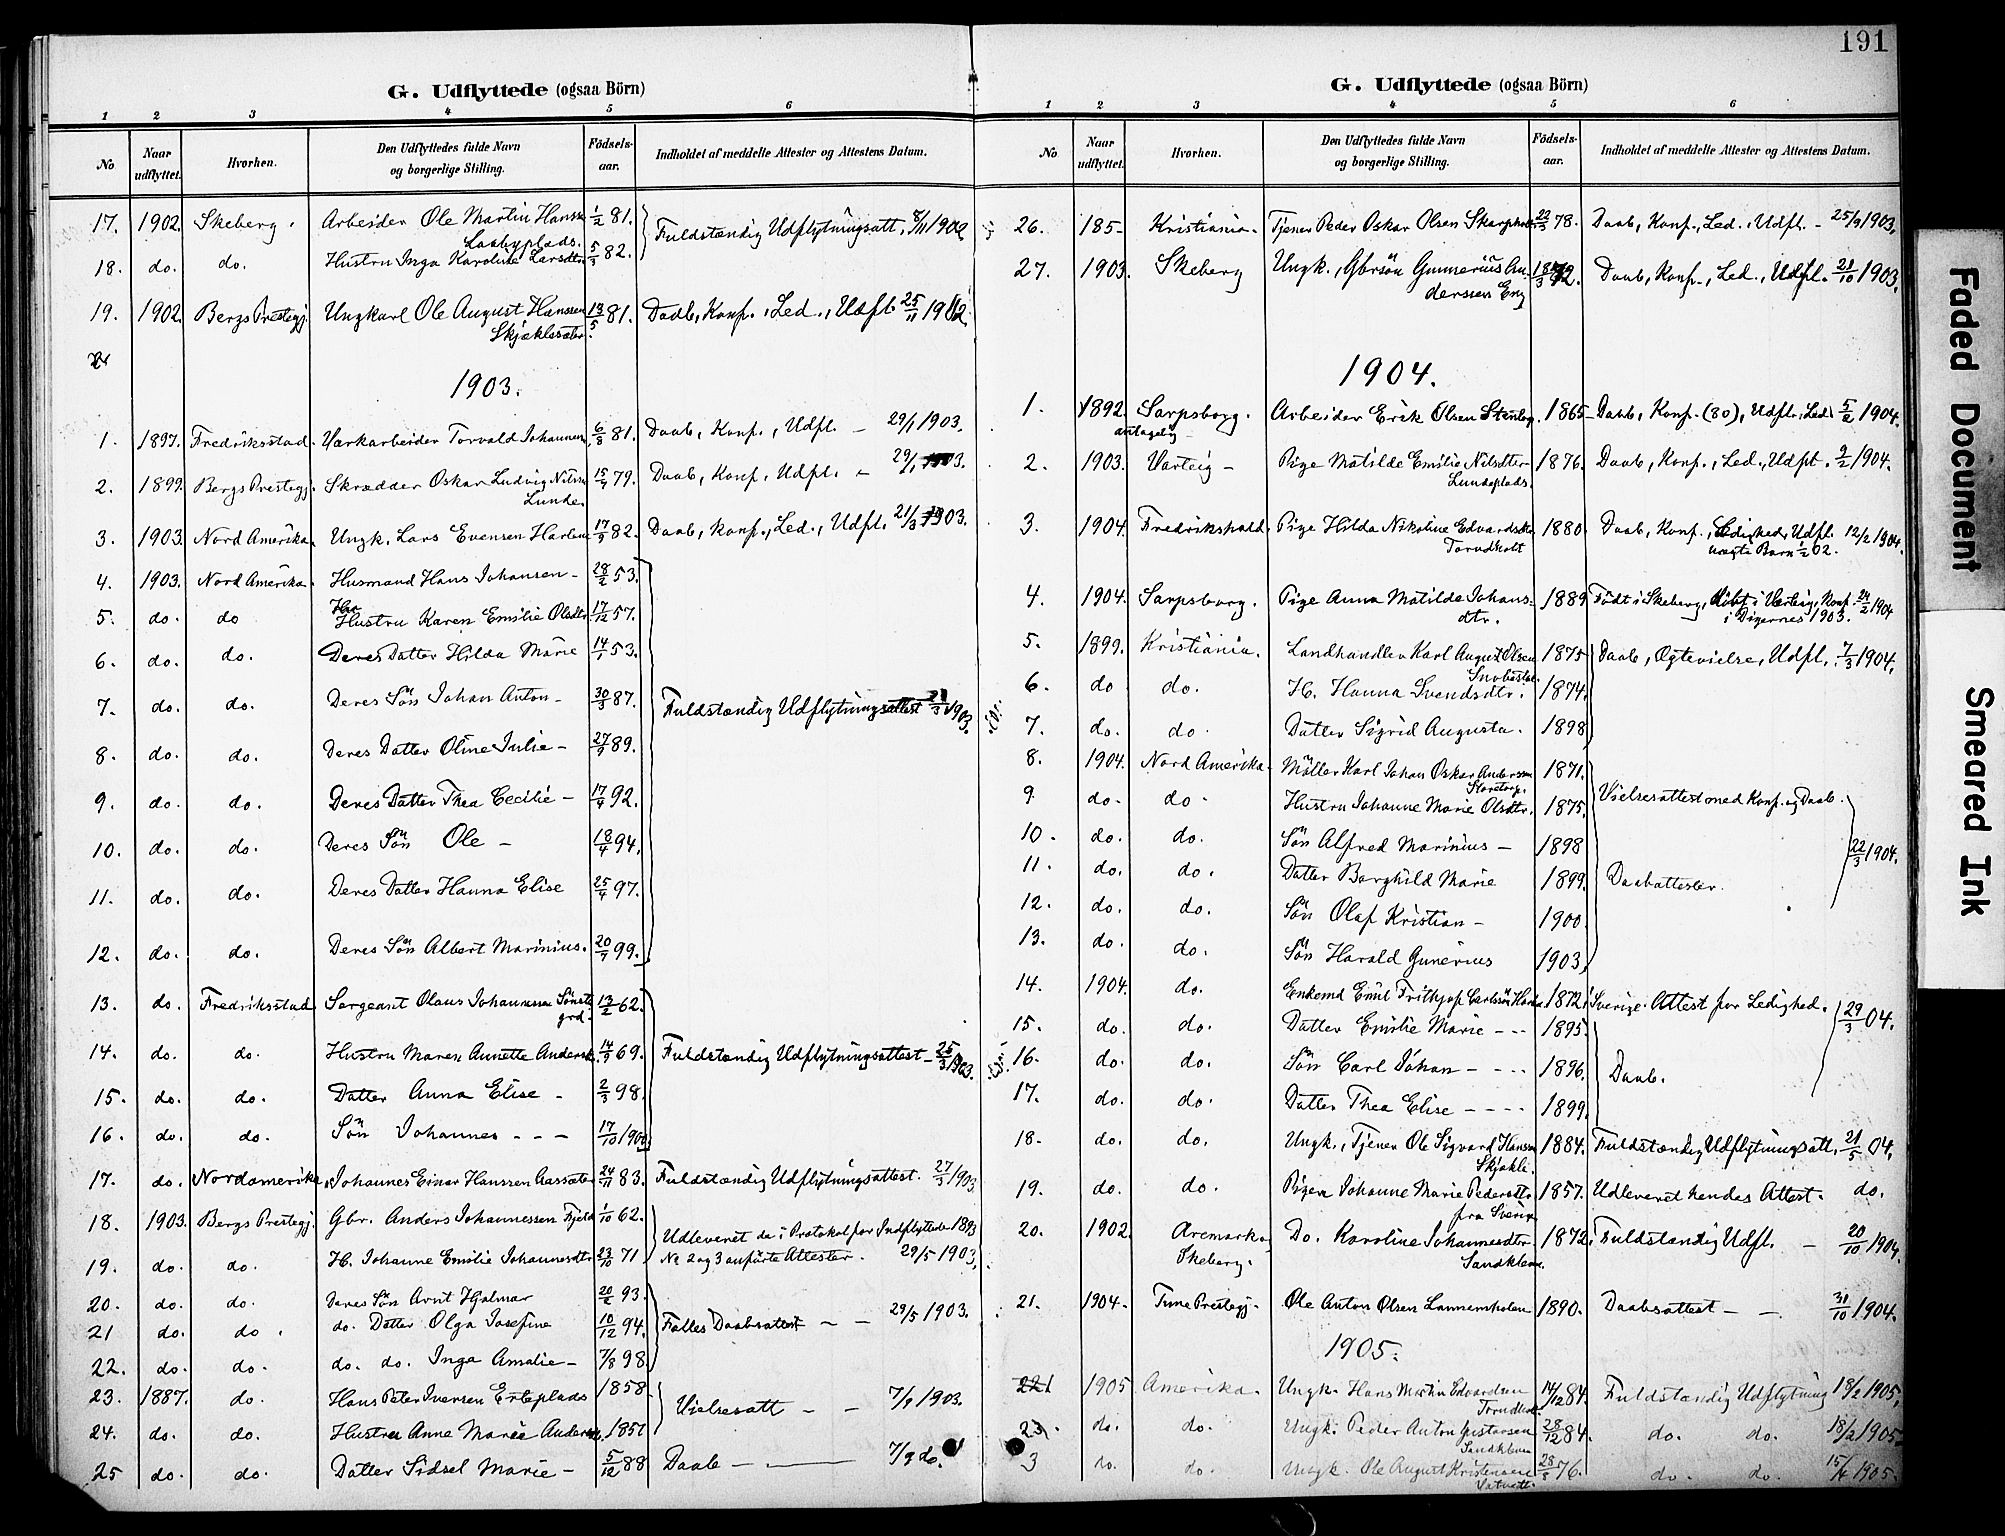 191
G. Udflyttede (ogsaa Börn)
1 2 3 4 5 6
No Naar udflyttet. Hvorhen. Den Udflyttedes fulde Navn og borgerlige Stilling. Födsels-aar. Indholdet af meddelte Attester og Attestens Datum.
17. 1902. Skeberg. Arbeider Ole Martin Hanssen 1/2 81. Fuldstændig Udflytningsatt. 8/11 1902.
18. do. do. Hustru Inga Karoline Larsdtr. 5/3 82.
19. 1902 Bergs Prestegj. Ungkarl Ole August Hanssen 13/5 81. Daab, Konf., Led., Udfl. 25/11 1902.
Skjæklesæter
1903.
1. 1897. Fredriksstad. Værkarbeider Torvald Johannesen 6/3 81. Daab, Konf., Udfl. — 29/1 1903.
2. 1899. Bergs Prestegj. Skrædder Oskar Ludvig Nilsen 79. Daab, Konf. Udfl. — 29/1 1903.
Lunde.
3. 1903. Nord Amerika. Ungk. Lars Evensen 82. Daab, Konf., Led., Udfl. 21/3 1903.
4. 1903. Nord Amerika. Husmand Hans Johansen — 28/2 53.
5. do. do Hustru Karen Emilie Olsdtr. 17/12 57.
6. do. do. Deres Datter Hilda Marie 53.
7. do. do. Deres Sön Johan Anton — 30/3 87. Fuldstændig Udflytningsattest 1903.
8. do. do. Deres Datter Oline Julie — 89.
9. do. do. Deres Datter Thea Cecilie — 92.
10. do. do. Deres Sön Ole — 18/4 94.
11. do. do. Deres Datter Hanna Elise 97.
12. do. do. Deres Sön Albert Marinius. 99.
13. do. Fredriksstad Sergeant Olaus Johannessen 13/2 62.
14. do. do. Hustru Maren Annette Andersd. 69. Fuldstændig Udflytningsattest — 25/3 1903.
15. do. do. Datter Anna Elise — 2/3 98.
16. do. do. Sön Johannes — — — 17/10 1900.
17. do. Nordamerika. Johannes Einar Hanssen 24/11 83. Fuldstændig Udflytningsattest. 27/3 1903.
18. 1903. Bergs Prestegj. Gbr. Anders Johannessen Fjeld 1/10 62.
Udleveret de i Protokol for Indflyttede 1893
19. do. do. H. Johanne Emilie Johannesdtr. 23/10 71 No 2 og 3 anförte Attester. 29/5 1903.
20. do. do. Deres Sön Arnt Hjalmar 20/2 93.
21 do. do. do. Datter Olga Josefine 10/12 94. Fælles Daabsattest — — 29/5 1903.
22. do. do. do. do. Inga Amalie — 7/8 98.
23. 1887. do. Hans Peter Iversen Erteplads 1858. Vielsesatt — — 7/9 1903.
24. do. do. Hustru Anne Marie Anders.
25 do. do. Datter Sidsel Marie — 5/12 88 Daab — 7/9 do.
G. Udflyttede (ogsaa Börn)
1 2 3 4 5 6
No Naar udflyttet. Hvorhen. Den Udflyttedes fulde Navn og borgerlige Stilling. Födsels-aar. Indholdet af meddelte Attester og Attestens Datum.
26. 185- Kristiania. Tjener Peder Oskar Olsen 78. Daab, Konf., Led., Udfl. — 25/9 1903.
27. 1903. Skeberg Ungk., Gbrsön Gunnerius Anderssen Eng Daab, Konf., Led., Udfl. 21/10 1903.
1904.
1. 1892. Sarpsborg. Arbeider Erik Olsen 1865 — Daab, Konf. (80), Udfl., Led. 5/2 1904.
antagelig
2. 1903. Varteig — Pige Matilde Emilie Nilsdtr. 1876. Daab, Konf., Led., Udfl. 9/2 1904.
Lundeplads.
3. 1904. Fredrikshald. Pige Hilda Nikoline Edvardsdtr. 1880. Daab, Konf., Ledighed, Udfl. 12/2 1904.
Torudholt uægte Barn 02.
4. 1904. Sarpsborg. Pige Anna Matilde Johansdtr. 1889 Født i Skeberg, döbt i Varteig, Konf. i Digernes 1903. 24/2 1904
5. 1899. Kristiania. Landhandler Karl August Olsen 1875 Daab, Ægtevielse, Udfl. 7/3 1904.
6. do do. H. Hanna Svendsdtr. 1874.
7. do. do. Datter Sigrid Augusta. 1898
8. 1904. Nord Amerika. Möller Karl Johan Oskar Anderssen 1871.
Vielsesattest med Konf. og Daab.
9 do. do. Hustru Johanne Marie Olsdtr. 1875.
10. do. do. Sön Alfred Marinius — 1898
22/3 1904.
11. do. do. Datter Borghild Marie 1899. Daabsattester.
12. do. do. Sön Olaf Kristian — 1900
13. do. do. Sön Harald Gunerius 1903
14. 1904. do. Enkemd Emil Frithjof Carlssön 1872. Sverige. Attest for Ledighed. 29/3 04.
15. do. do. Datter Emilie Marie — — 1895
16. do. do. Sön Carl Johan — — 1896. Daab.
17. do. do. Datter Thea Elise — — — 1899.
18. do. do. Ungk., Tjener Ole Sigvard Hanssen 1884. Fuldstændig Udflytningsatt. 21/5 04.
Skjækle.
19. do. do. Pigen Johanne Marie Pedersdtr. 1857. Udleveret hendes Attest. do.
fra Sverige
20. 1902. Aremark. Do. Karoline Johannesdtr. 1872. Fuldstændig Udfl. — 20/10 1904.
Skeberg.
21. 1904. Tune Prestegj. Ole Anton Olsen 1890. Daabsattest — — 31/10 1904.
1905.
1 1905 Amerika. Ungk. Hans Martin Edvardsen 14/12 84. Fuldstændig Udflytning 18/2 1905.
Torudholt.
23. do. do. Ungk. Peder Anton Gustavsen 28/12 84. do. do. 18/2 1905.
3 do. do. Ungk. Ole August Kristensen 76. do. do. 1905.
Faded Document
Smeared Ink